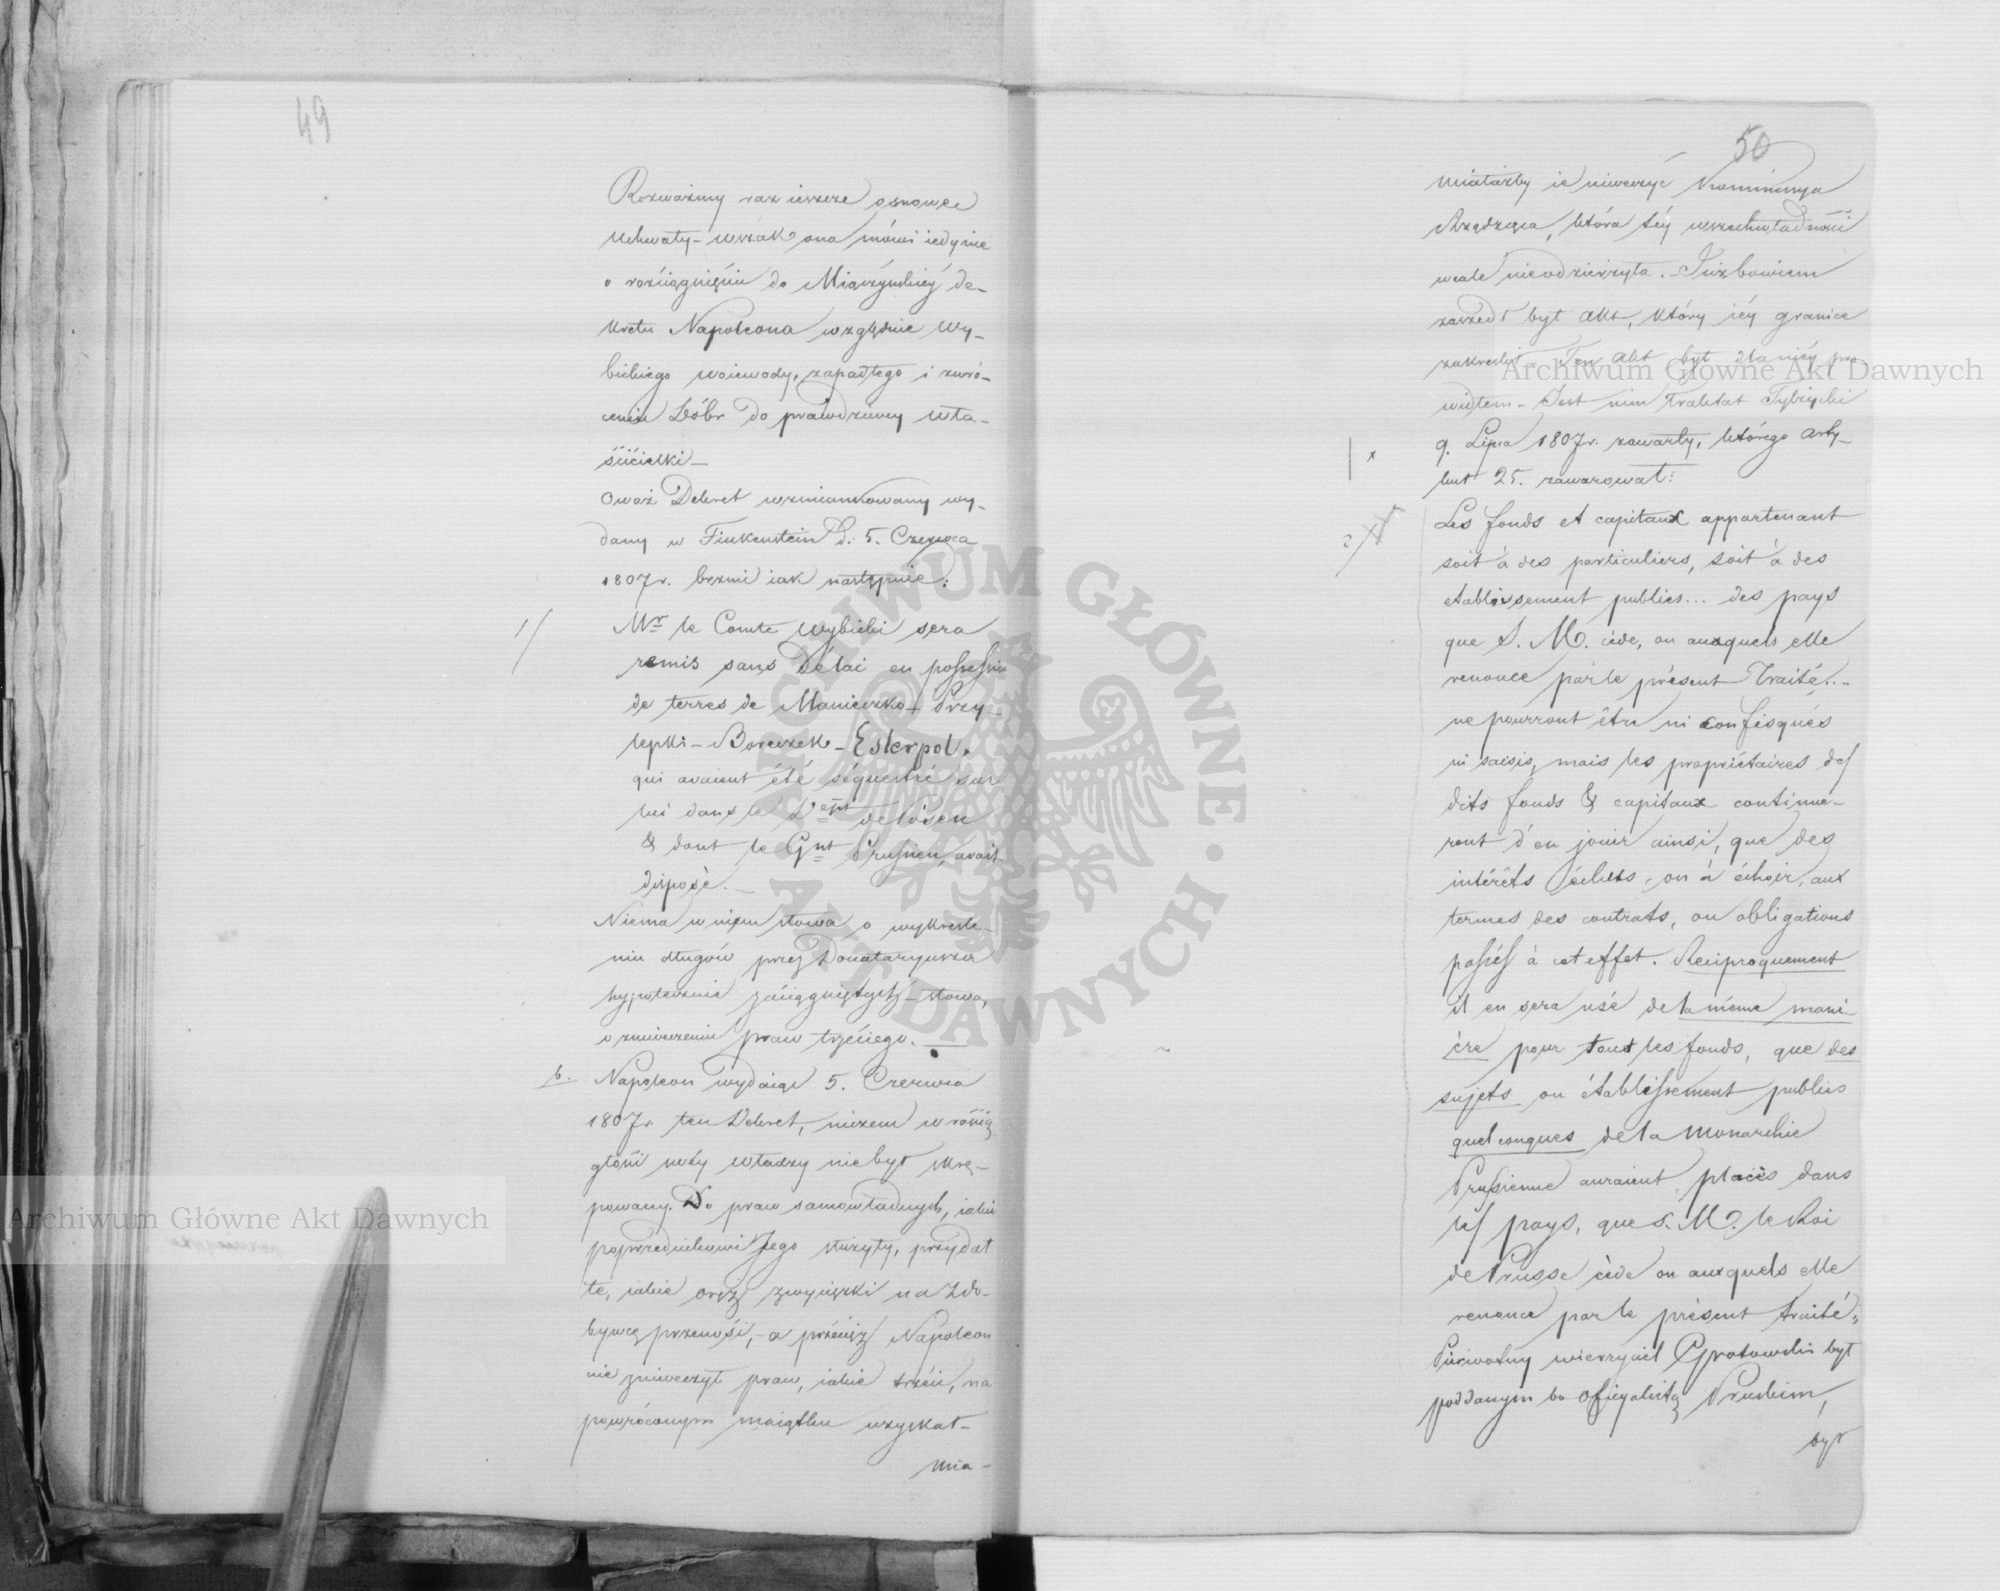 49
Rozważmy raz ieszcze osnowę
Uchwały – wszak ona mówi iedynie
o rozciągnięciu do Miączyńskiéy de-
kretu Napoleona względnie Wy-
bickiego woiewody, zapadłego i zwró-
ceniu Dóbr do prawdziwey wła-
ścicielki –
Owoż Dekret wzmiankowany wy-
dany w Finkenstein d. 5. Czerwca
1807 r. brzmi iak następnie:
1/ Mr le Comte Wybicki sera
remis sans délai en possession
de terres de Manieczko – Przy-
lepki – Boreczek – Esterpol.
qui avaient été séquestré sur
lui dans le Dept de Posen
& dont le Gnt Prussien, avait
disposé. –
Niema w niém słowa o wykreśle-
niu długów przez Donataryusza
hypotecznie zaciągniętych – słowa,
o zniweczeniu praw trzéciego. –
6. Napoleon wydaiąc 5. Czerwca
1807 r. ten Dekret, niczem w rozcią
głości swéy władzy nie był skrę-
powany. Do praw samowładnych, iakie
poprzednikowi Jego służyły, przydał
te, iakie oręż zwycięzki na zdo-
bywcę przenosi, – a przéciéż Napoleon
nie zniweczył praw, iakie trzéci, na
powróconym maiątku uzyskał –
mia –
50
miałażby ie niweczyć Kommissya
Rządząca, która téy wszechwładności
wcale nieodzierżyła. – Już bowiem
zaszedł był akt, który iéy granice
zakreślił. Ten akt był dla niéy pra
widłem – Jest nim Traktat Tylżycki
9. Lipca 1807 r. zawarty, którego arty-
kuł 25. zawarował:
2/ Les fonds et capitaux appartenant
soit à des particuliers, soit à des
etablissement publics... des pays
que S. M. cède, ou auxquels elle
renonce par le présent Traité...
ne pourront être ni confisqués
ni saisis, mais les propriétaires des
dits fonds & capitaux continue-
ront d'en jouir ainsi, que des
intérêts échus, ou à échoir, aux
termes des contrats, ou obligations
passés à cet effet. Reciproquement
il en sera usé de la même mani-
ère pour tout les fonds, que des
sujets ou établissement publics
quelconques de la Monarchie
Prussienne auraient placés dans
les pays, que S. M. le Roi
de Prusse cède ou auxquels elle
renonce par le présent traité"
Pierwotny wierzyciel Gprotowski był
poddanym bo oficyalistą Pruskim,
był
Archiwum Główne Akt Dawnych
Archiwum Główne Akt Dawnych
ARCHIWUM GŁÓWNE AKT DAWNYCH